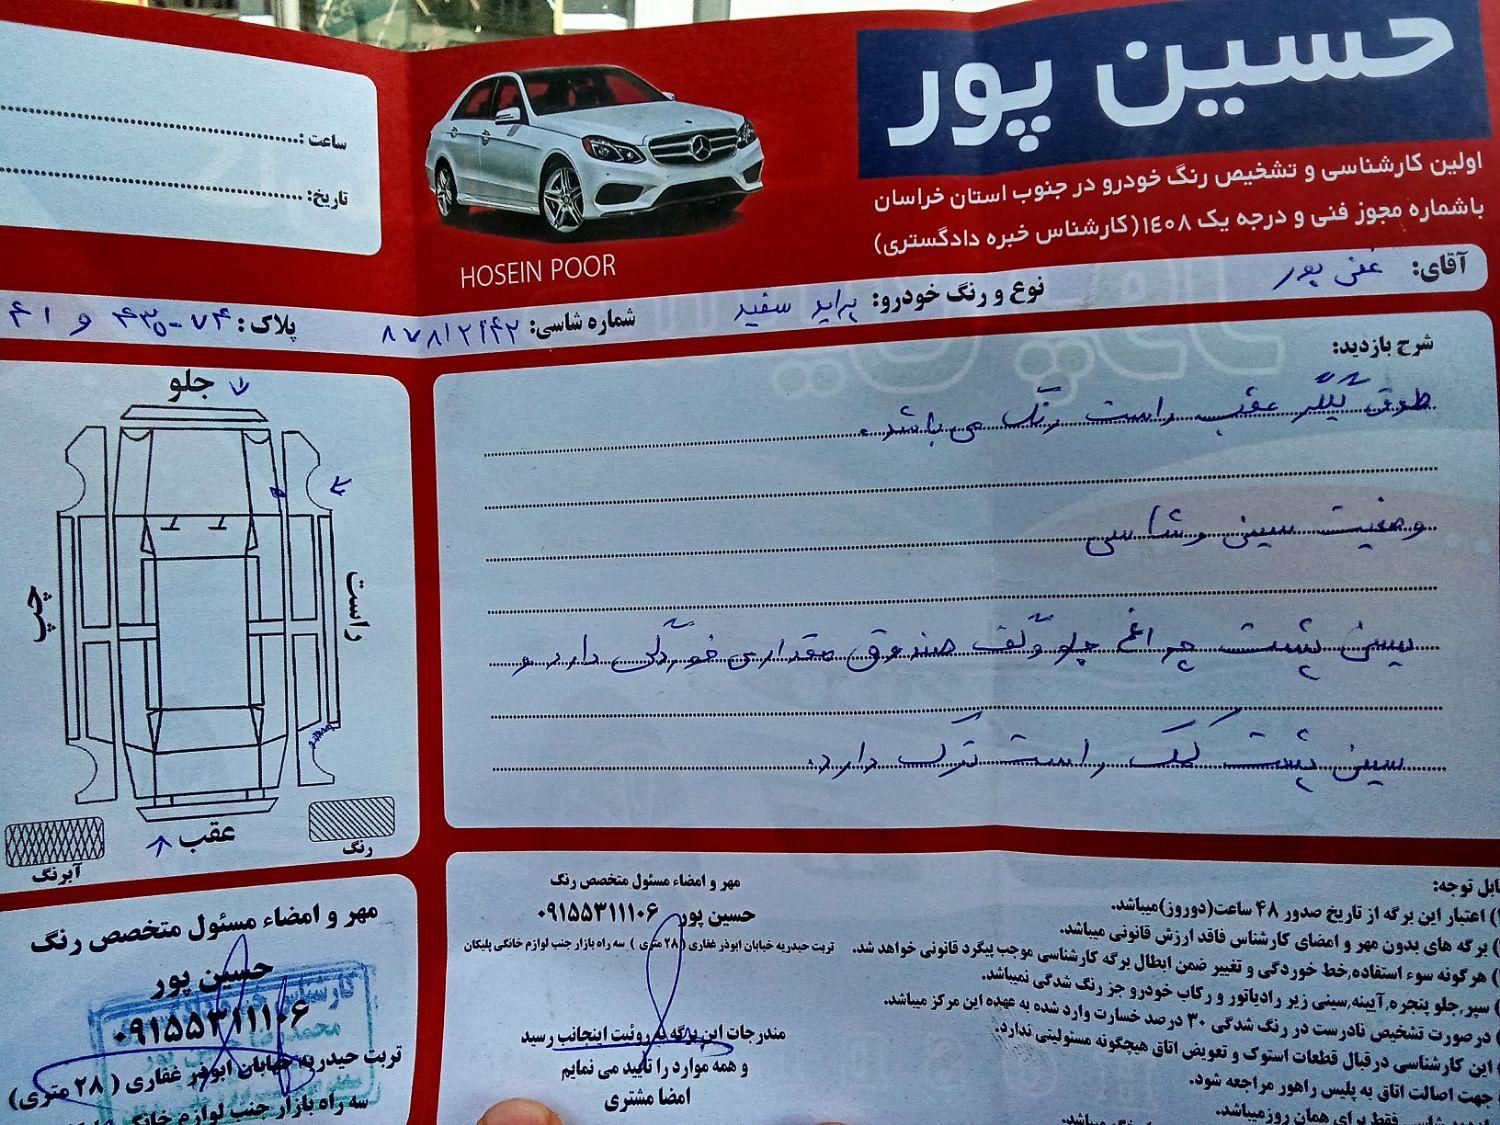 حسین پور
اولین کارشناسی و تشخیص رنگ خودرو در جنوب استان خراسان
باشماره مجوز فنی و درجه یک ۱۴۰۸ (کارشناس خبره دادگستری)
HOSEIN POOR
ساعت :
تاریخ:
آقای: غنی پور نوع و رنگ خودرو: پراید سفید شماره شاسی: پلاک :
شرح بازدید:
طوق گلگر عقب راست رنگ می باشد.
وضعیت سینی و شاسی
سینی پشت چراغ جلو و کف صندوق مقداری خوردگی دارد و
سینی پشت کمک راست ترک دارد.
جلو
چپ
راست
عقب
آبرنگ
رنگ
مهر و امضاء مسئول متخصص رنگ
حسین پور
۰۹۱۵۵۳۱۱۱۰۶
تربت حیدریه خیابان ابوذر غفاری ( ۲۸ متری)
سه راه بازار جنب لوازم
مهر و امضاء مسئول متخصص رنگ
حسین پور ۰۹۱۵۵۳۱۱۱۰۶
تربت حیدریه خیابان ابوذر غفاری ( ۲۸ متری ) سه راه بازار جنب لوازم خانگی پلیکان
مندرجات این برگه به روئیت اینجانب رسید
و همه موارد را تأیید می نمایم
امضا مشتری
توجه:
) اعتبار این برگه از تاریخ صدور ۴۸ ساعت(دوروز)میباشد.
) برگه های بدون مهر و امضای کارشناس فاقد ارزش قانونی میباشد.
) هرگونه سوء استفاده،خط خوردگی و تغییر ضمن ابطال برگه کارشناسی موجب پیگرد قانونی خواهد شد.
) سپر,جلو پنجره,آیینه,سینی زیر رادیاتور و رکاب خودرو جز رنگ شدگی نمیباشد.
) درصورت تشخیص نادرست در رنگ شدگی ۳۰ درصد خسارت وارد شده به عهده این مرکز میباشد.
) این کارشناسی درقبال قطعات استوک و تعویض اتاق هیچگونه مسئولیتی ندارد.
جهت اصالت اتاق به پلیس راهور مراجعه شود.
فقط برای همان روزمیباشد.